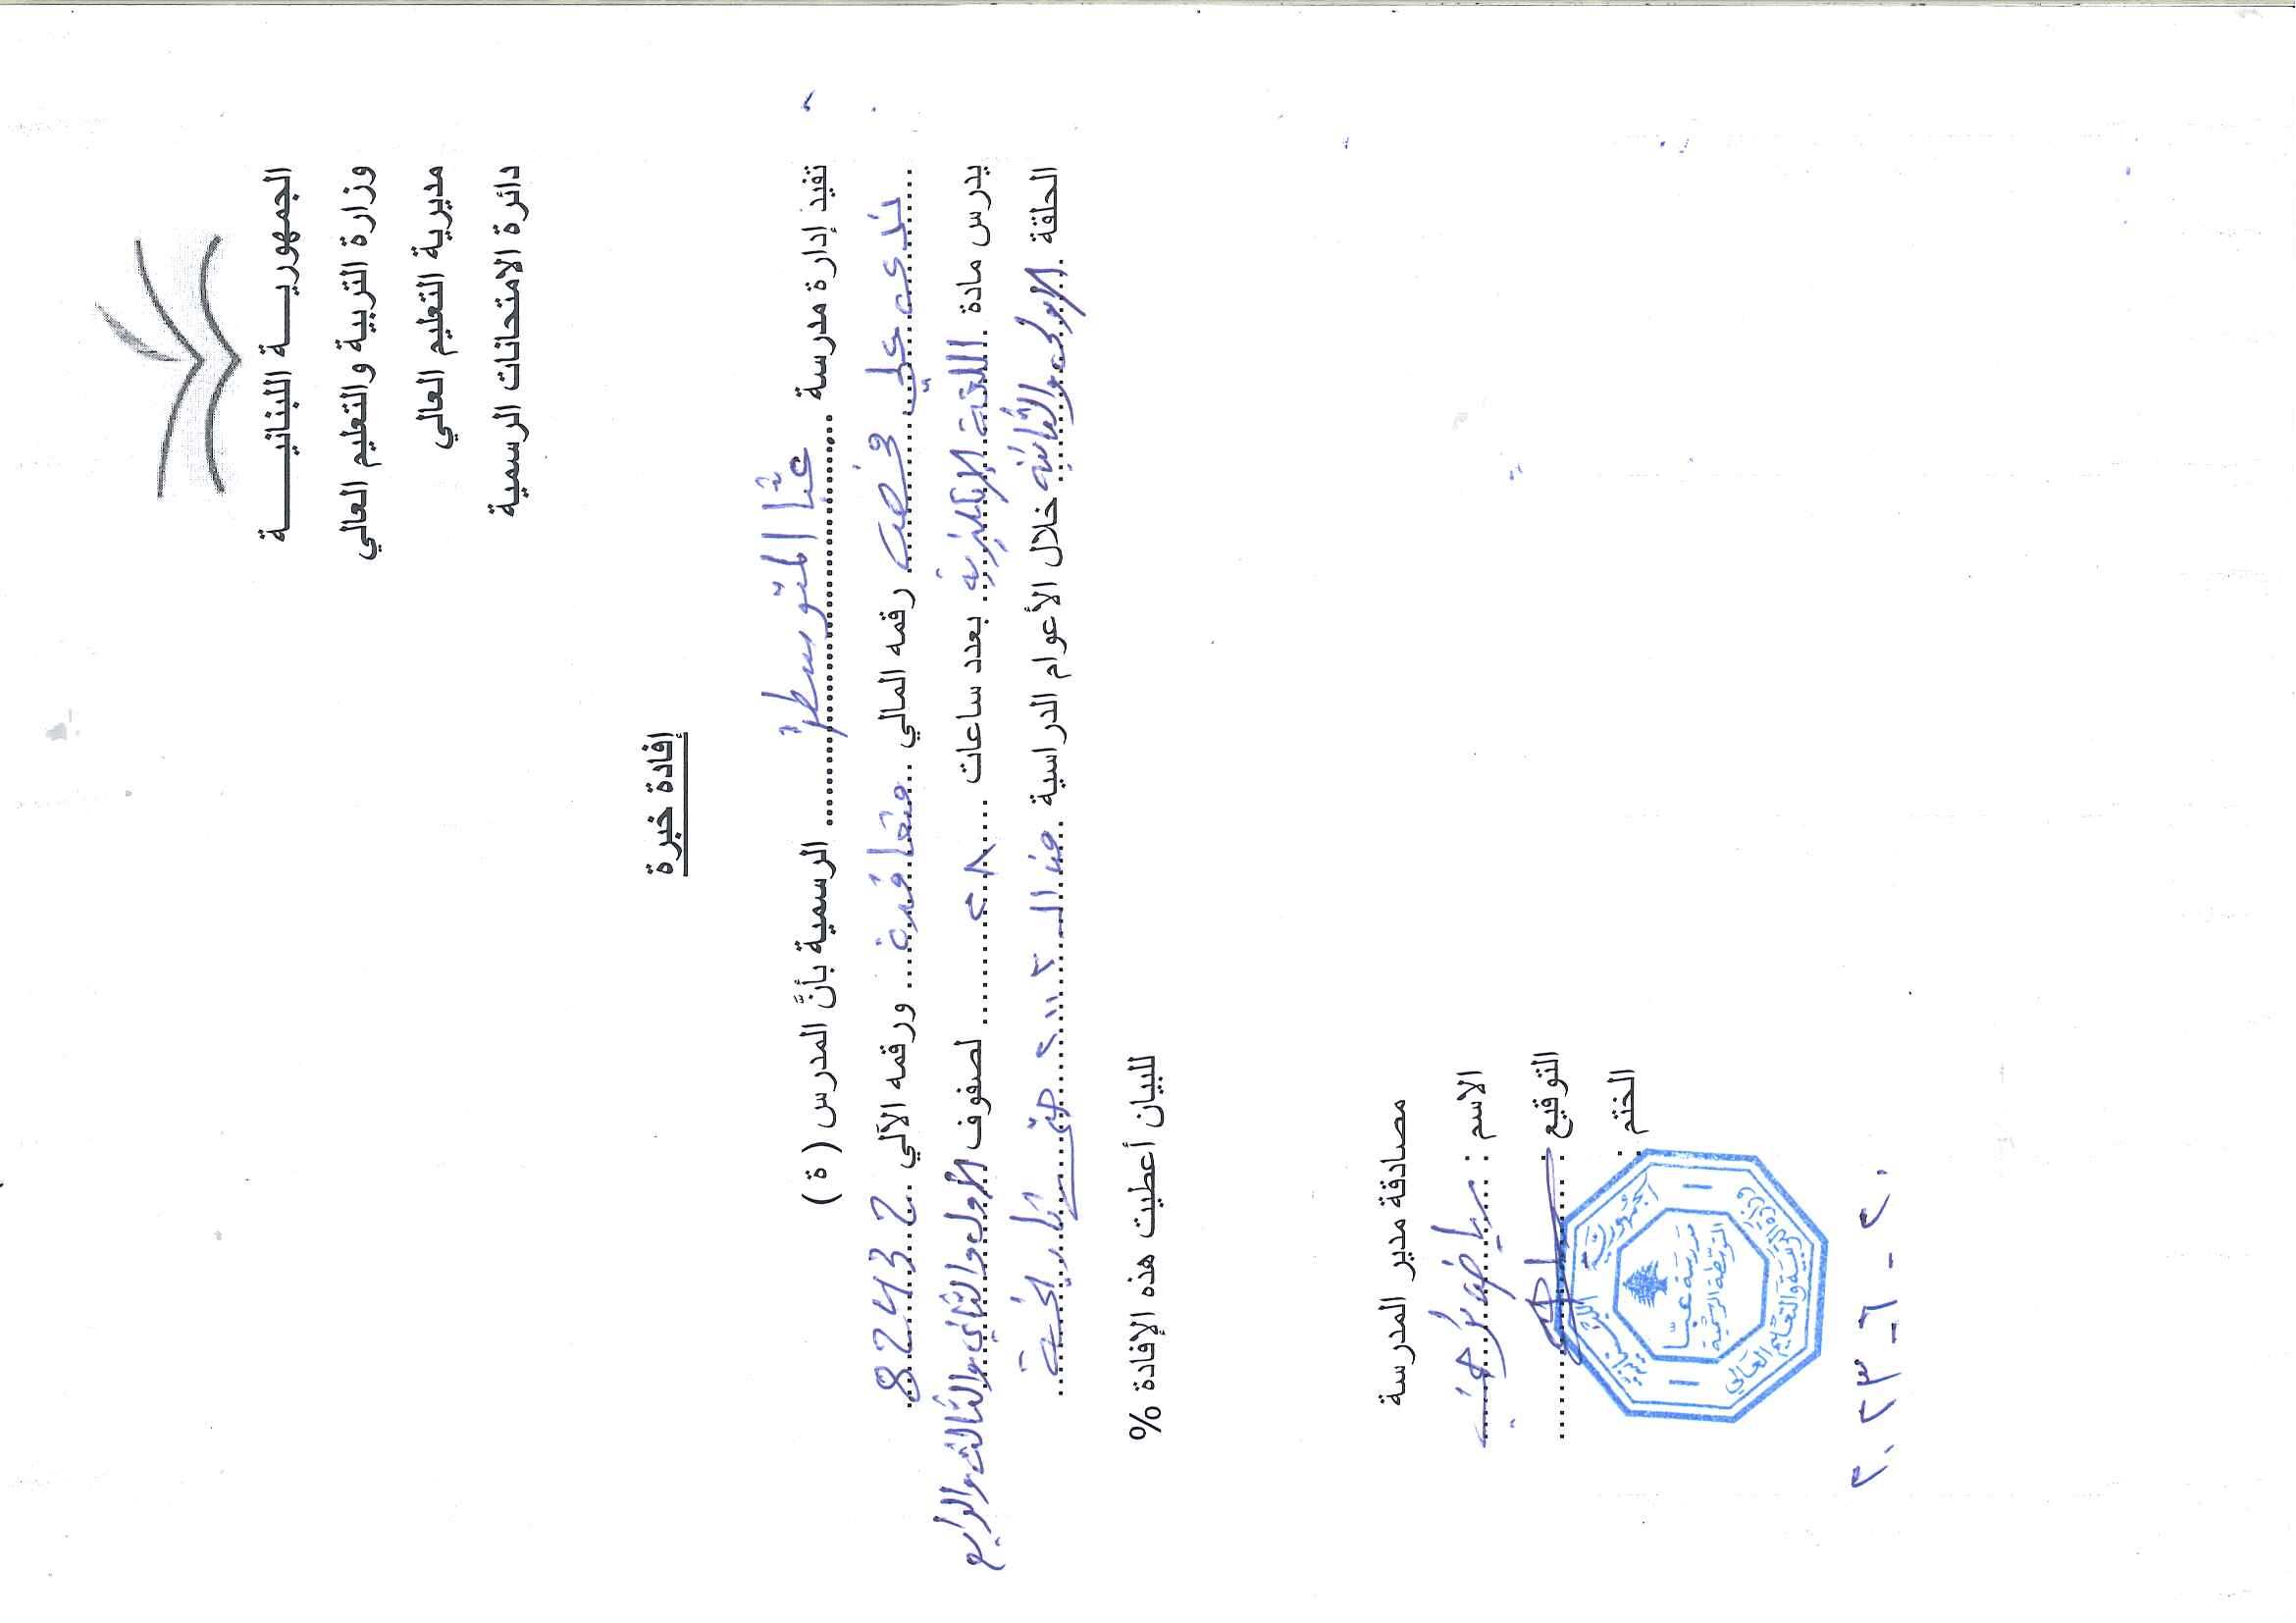 الجمهوريـــة اللبنانيـــــة
وزارة التربية والتعليم العالي
مديرية التعليم العالي
دائرة الامتحانات الرسمية
إفادة خبرة
تفيد إدارة مدرسة عبّا المتوسطة الرسمية بأنَّ المدرس ( ة )
ندى علي رقمه المالي متعاقدة ورقمه الآلي 82432
يدرس مادة اللغة الإنكليزية بعدد ساعات ٢٨ لصفوف الأول والثاني والثالث والرابع
الحلقة الأولى والثانية خلال الأعوام الدراسية منذ الـ حتى تاريخه
للبيان أعطيت هذه الإفادة %
مصادقة مدير المدرسة
الاسم :
التوقيع :
الختم :
الجمهورية اللبنانية
وزارة التربية والتعليم العالي
مدرسة عبّا
المتوسطة الرسمية
٢٠-٦-٢٠٢٣